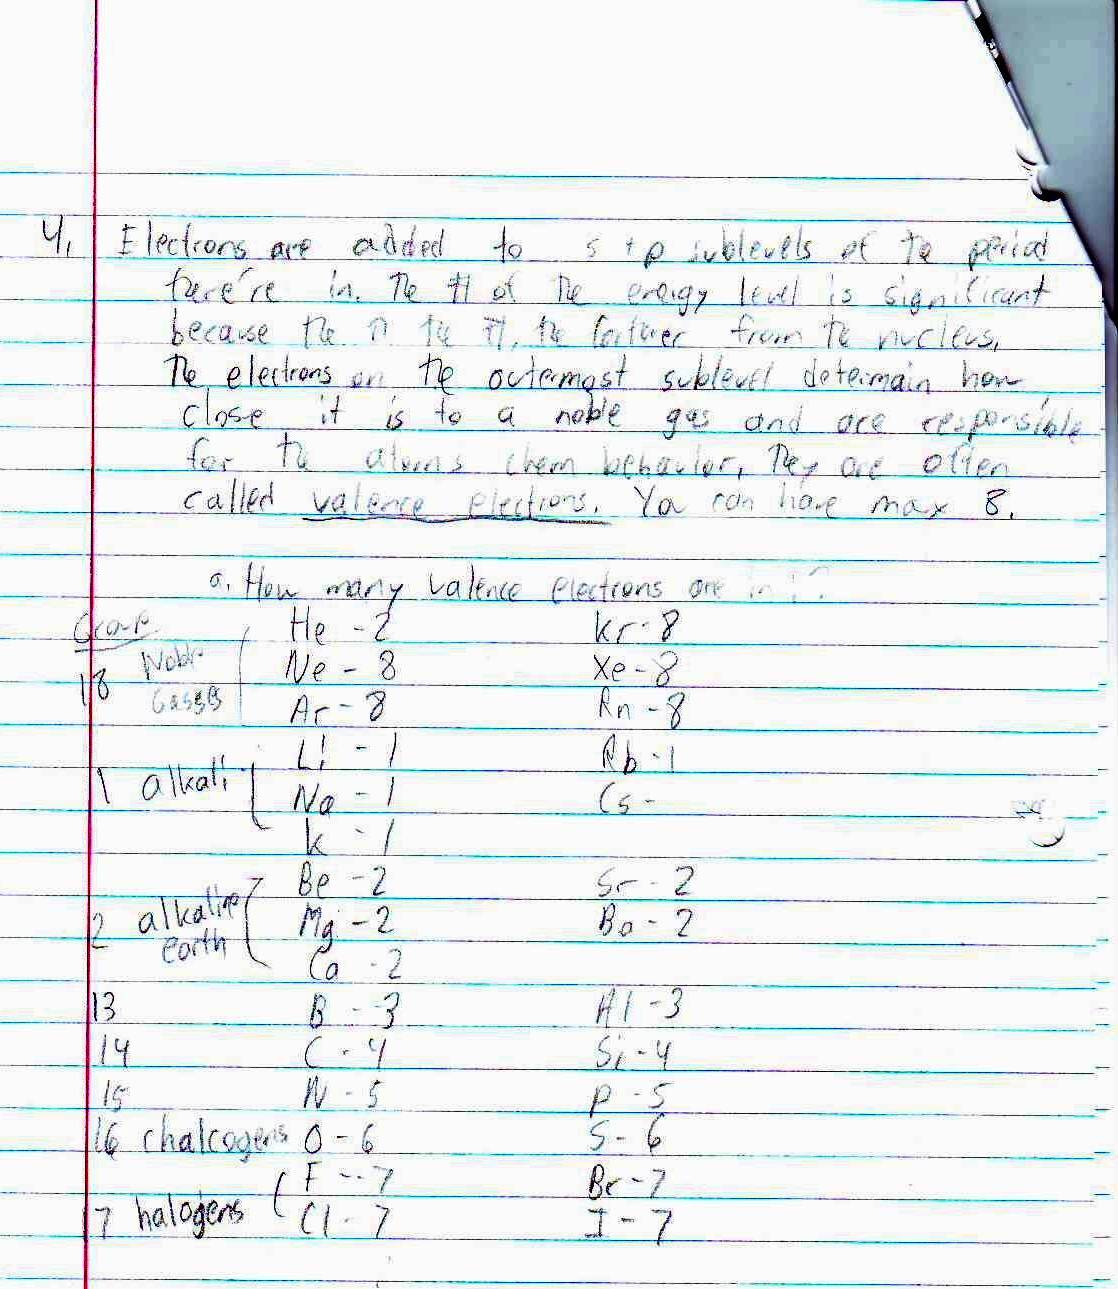 4. Electrons are added to s + p sublevels of the period
there're in. The # of the energy level is significant
because the ↑ the #, the farther from the nucleus.
The electrons on the outermost sublevel determain how
close it is to a noble gas and are responsible
for the atoms chem behavior, They are often
called valence electrons. You can have max 8.
a. How many valence electrons are in :?
Group
He - 2 Kr - 8
18 Noble Ne - 8 Xe - 8
Gasses Ar - 8 Rn - 8
Li - 1 Rb - 1
1 alkali Na - 1 Cs -
K - 1
Be - 2 Sr - 2
2 alkaline Mg - 2 Ba - 2
earth Ca - 2
13 B - 3 Al - 3
14 C - 4 Si - 4
15 N - 5 P - 5
16 chalcogens O - 6 S - 6
F - 7 Br - 7
17 halogens Cl - 7 I - 7